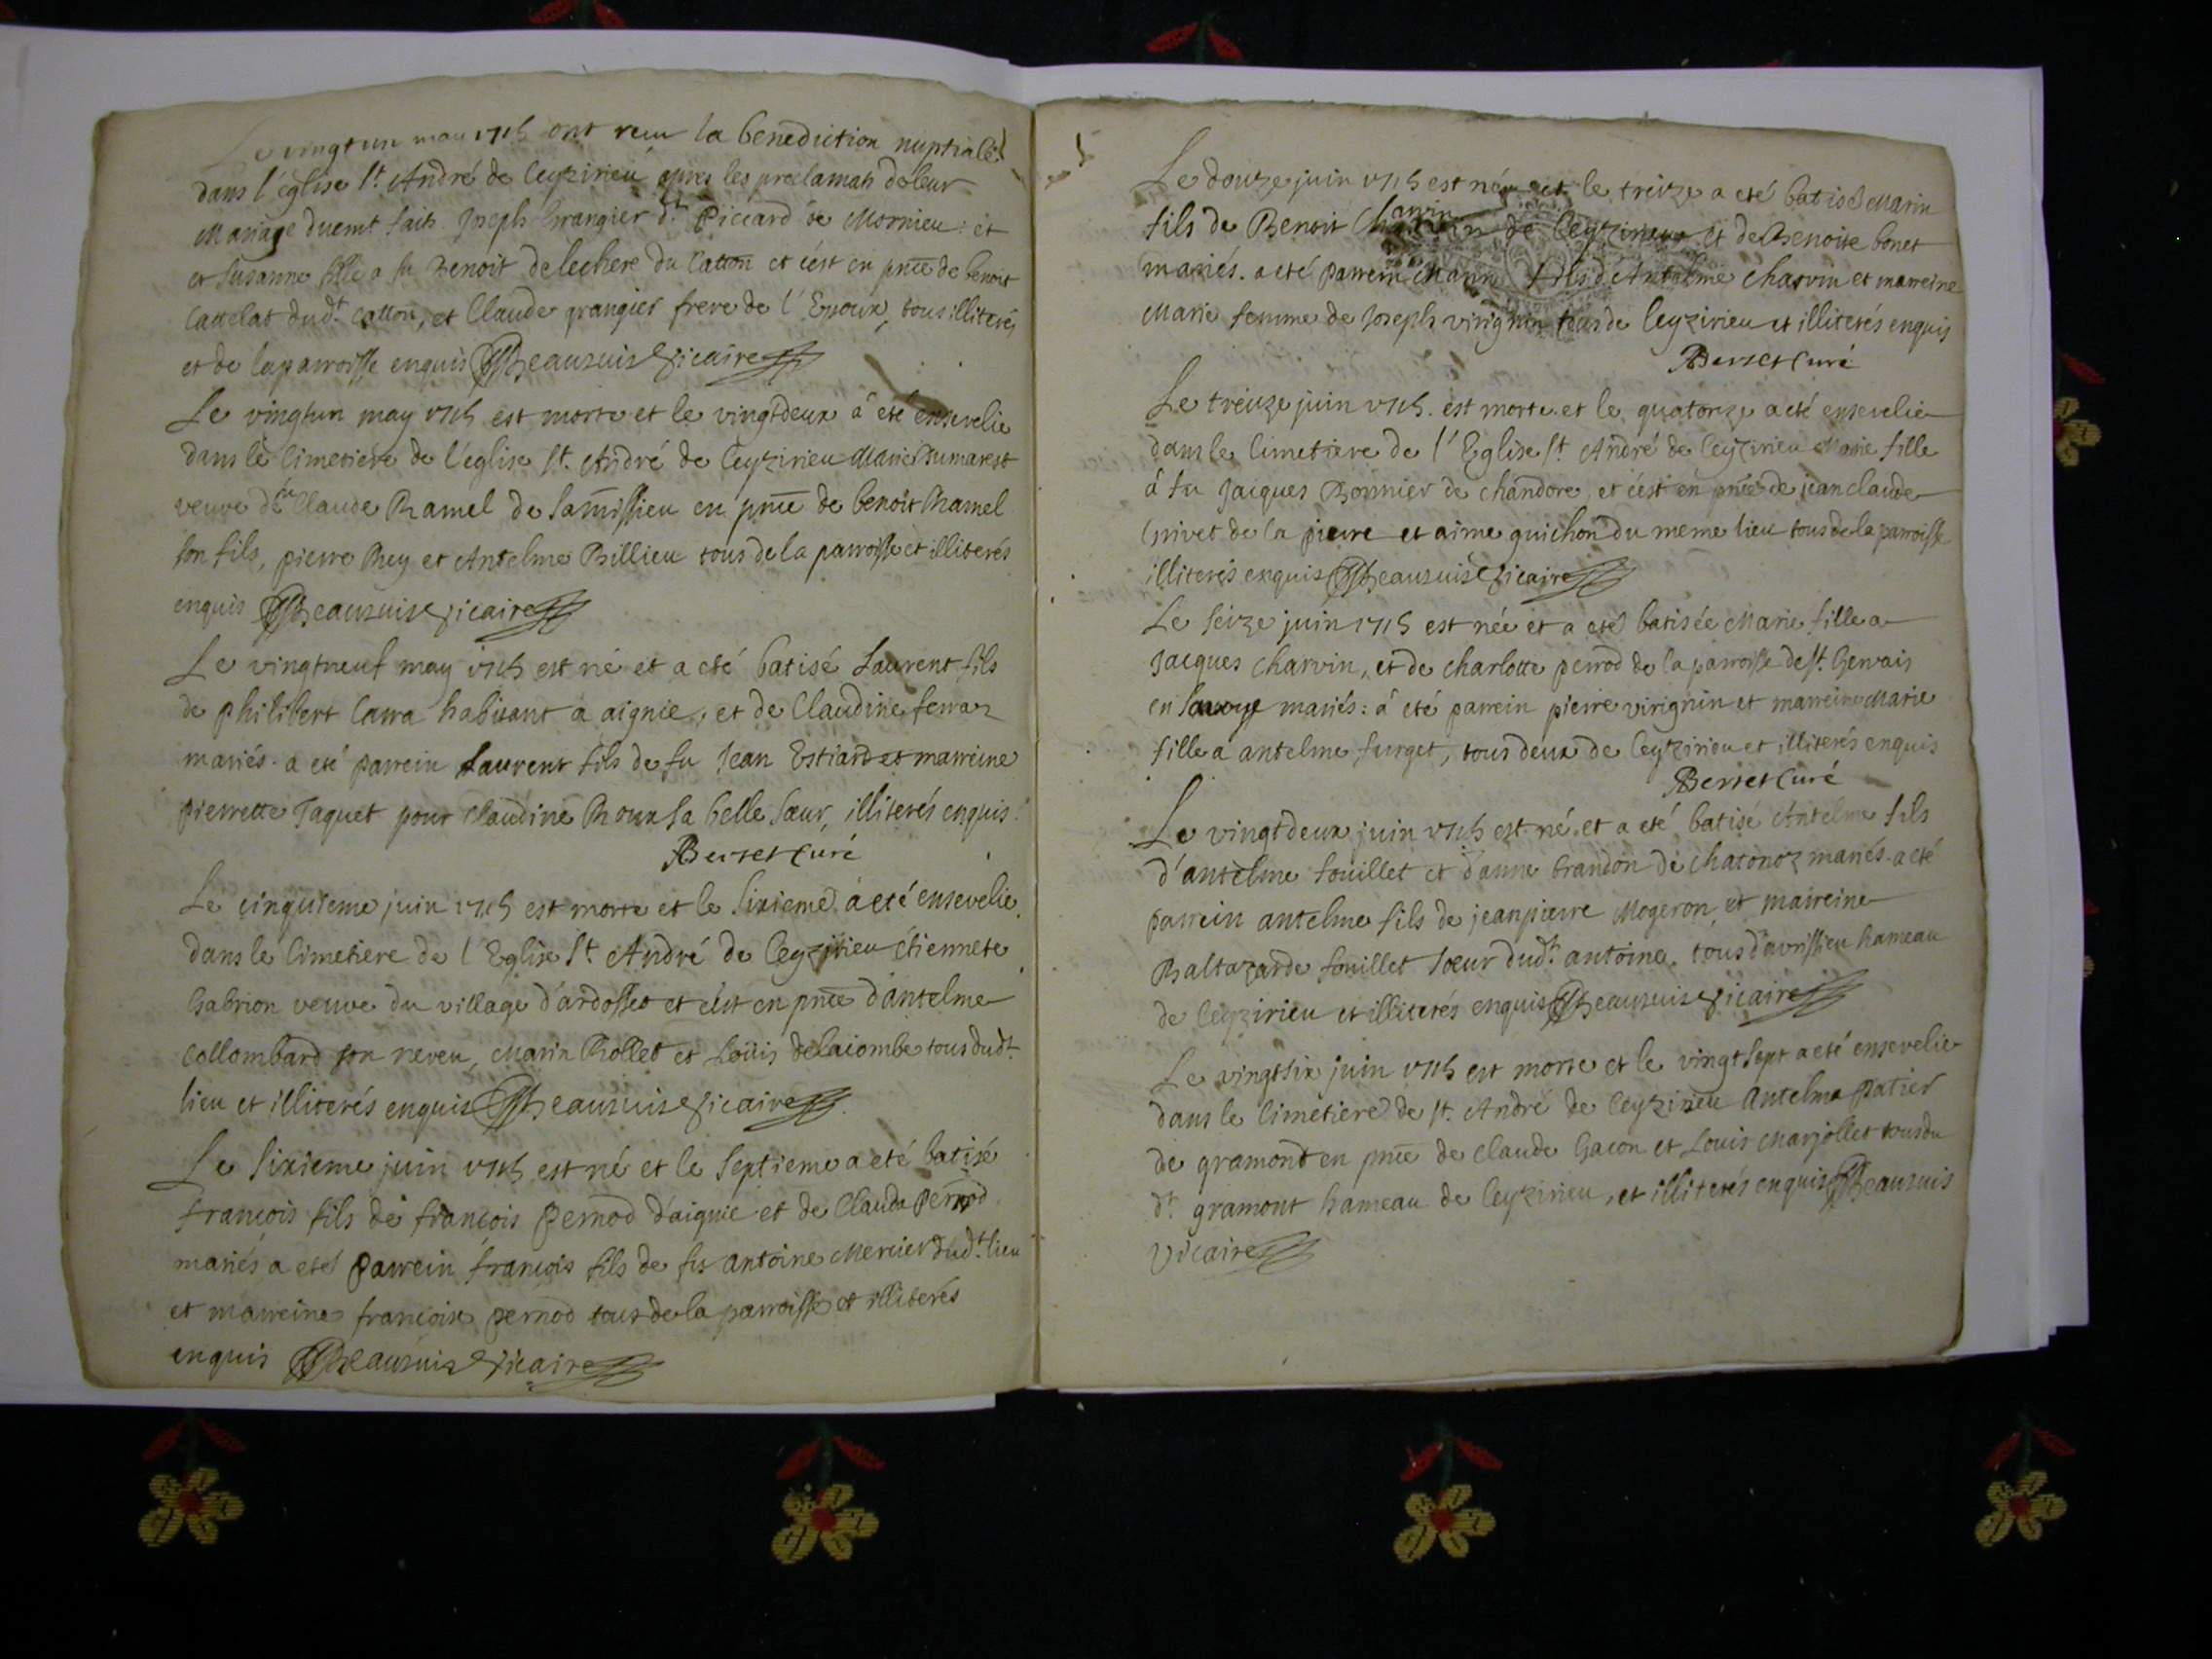 Le vingt un may 1715 ont receu la benediction nuptiale
dans l'église St. André de Ceyzirieu apres les proclamats de leur
Mariage duemt faits Joseph Grangier dt. Piccard de Mornieu et
et Susanne fille a fu Benoit delechere du Catton et c'est en pnce de benoit
Cattelat dudt. catton, et Claude grangier frere de l'Epoux, tous illiterés
et de la parroisse enquis Beausuis Vicaire
Le vingtun may 1715 est morte et le vingtdeux a été ensevelie
dans le Cimetiere de l'église St. André de Ceyzirieu Marie Dumarest
veuve de Claude Ramel de Samissieu en pnce de benoît Ramel
son fils, pierre Rey et Antelme Billieu tous de la parroisse et illiterés
enquis Beausuis Vicaire
Le vingtneuf may 1715 est né et a eté batisé Laurent fils
de philibert Carra habitant a aignie, et de Claudine ferraz
mariés. a eté parrein Laurent fils de fu Jean Estiard et marreine
pierrette Taquet pour Claudine Roux sa belle sœur, illiterés enquis.
Berset Curé
Le cinquieme juin 1715 est morte et le sixieme a eté ensevelie
dans le Cimetiere de l'Eglise St. André de Ceyzirieu étiennete
Gabrion veuve du village d'ardosset et c'est en pnce d'antelme
Collombard son neveu, Marin Rollet et Loüis delaiombe tous dudt.
lieu et illiterés enquis Beausuis Vicaire
Le sixieme juin 1715 est né et le septieme a eté batisé
francois fils de francois pernod d'aignie et de Clauda pernod
mariés a eté parrein francois fils de fu antoine Mercier dudt. lieu
et marreine francoise pernod tous de la parroisse et illiterés
enquis Beausuis Vicaire
Le douze juin 1715 est né et le treize a eté batisé Marin
fils de Benoit Charvin de Ceyzirieu et de Benoite bonet
mariés. a eté parrein Marin fils d'Antelme Charvin et marreine
Marie femme de Joseph virignin tous de Ceyzirieu et illiterés enquis
Berset Curé
Le treize juin 1715. est morte et le quatorze a eté ensevelie
dans le Cimetiere de l'Eglise St. André de Ceyzirieu Marie fille
á fu Jacques Bonnier de chandore, et c'est en pnce de jean claude
Grivet de la pierre et aime guichon du meme lieu tous de la parroisse
illiterés enquis Beausuis Vicaire
Le seize juin 1715 est née et a eté batisée Marie fille a
Jacques Charvin, et de charlotte perrod de la parroisse de St. Gervais
en Savoye mariés: a eté parrein pierre virignin et marreine Marie
fille a antelme furget, tous deux de Ceyzirieu et illiterés enquis
Berset Curé
Le vingtdeux juin 1715 est né, et a eté batisé Antelme fils
d'antelme fouillet et d'anne brandon de chatonoz mariés. a eté
parrein antelme fils de jeanpierre Mogeron et marreine
Baltazarde fouillet sœur dudt. antoine. tous d'avrissieu hameau
de Ceyzirieu et illiterés enquis Beausuis Vicaire
Le vingtsix juin 1715 est morte et le vingtsept a eté ensevelie
dans le Cimetiere de St. André de Ceyzirieu Antelma patier
de gramont en pnce de Claude Gacon et Louis Marjollet tous du
dt. gramont hameau de Ceyzirieu, et illiterés enquis Beausuis
Vicaire